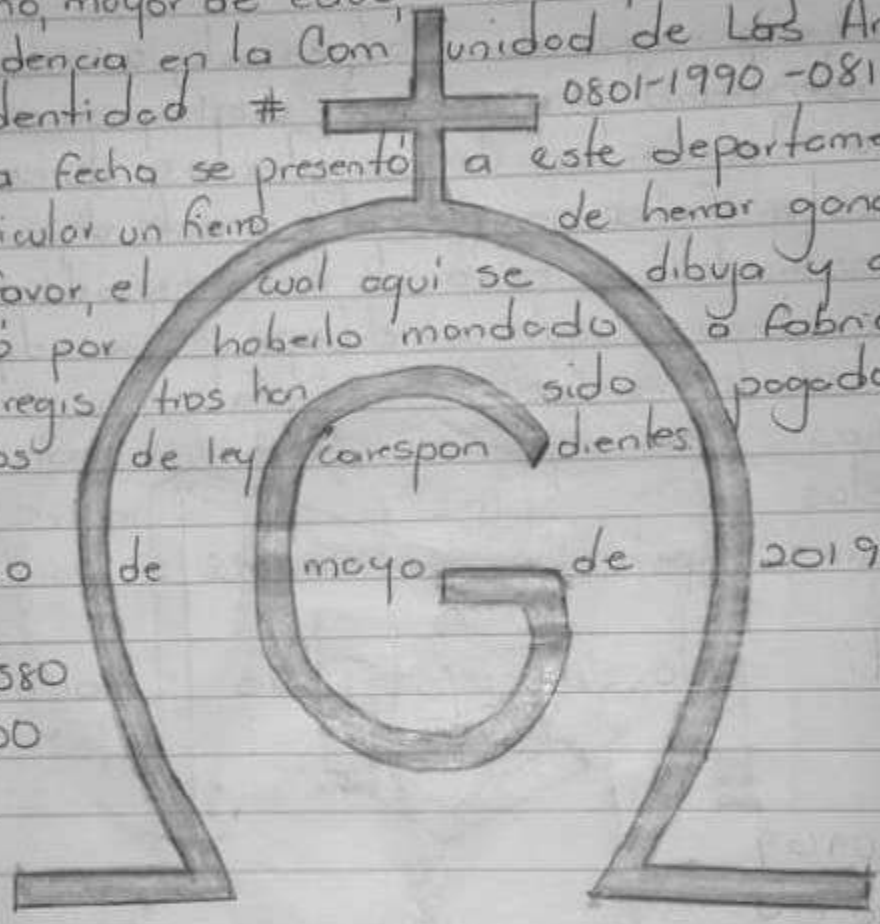 no, mayor de
dencia en la Com unidad de Las
dentidad # 0801-1990-081
a fecha se presentó a este departame
icular un fierro de herrar gana
favor, el cual aqui se dibuja y
ó por haberlo mandado ó fabric
regis tros han sido pagado
os de ley corespon dientes
o de mayo de 2019
580
00
G